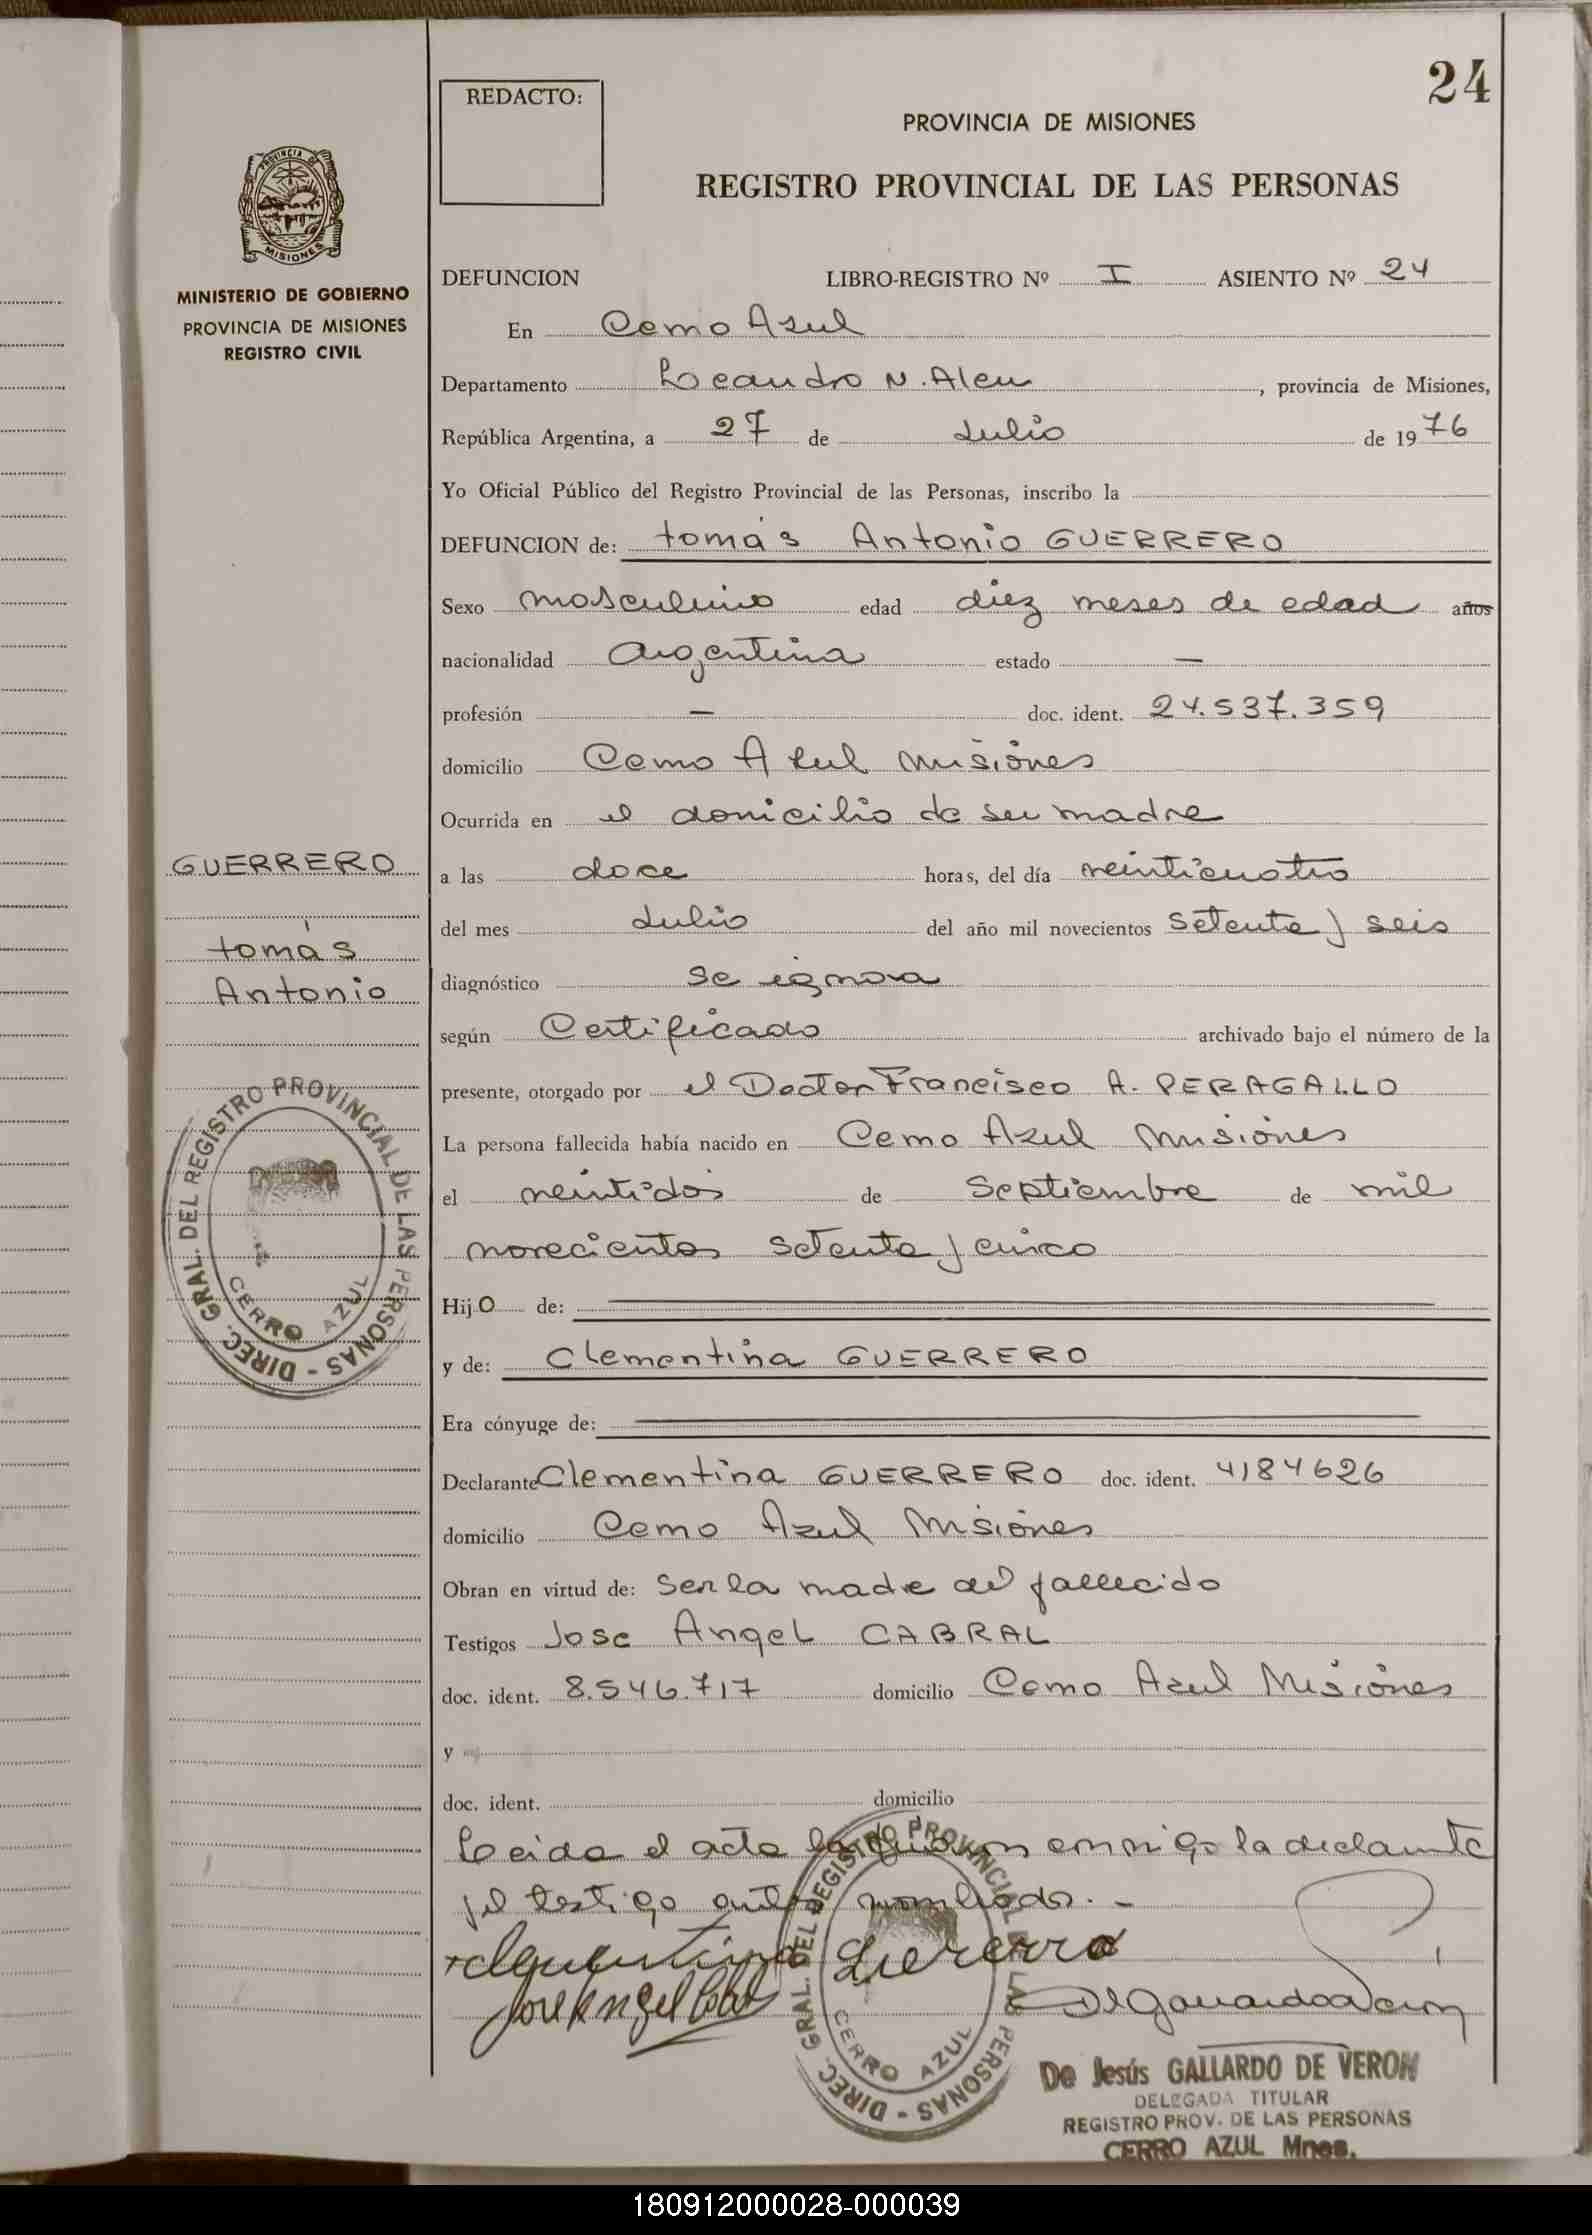 24
REDACTO:
PROVINCIA DE MISIONES
REGISTRO PROVINCIAL DE LAS PERSONAS
PROVINCIA DE
MISIONES
MINISTERIO DE GOBIERNO
PROVINCIA DE MISIONES
REGISTRO CIVIL
DEFUNCION LIBRO-REGISTRO Nº I ASIENTO Nº 24
En Cerro Azul
Departamento Leandro N. Alem, provincia de Misiones,
República Argentina, a 27 de Julio de 1976
Yo Oficial Público del Registro Provincial de las Personas, inscribo la
DEFUNCION de: tomás Antonio GUERRERO
Sexo masculino edad diez meses de edad años
nacionalidad Argentina estado —
profesión — doc. ident. 24.537.359
domicilio Cerro Azul Misiones
Ocurrida en el domicilio de su madre
a las doce horas, del día veinticuatro
del mes Julio del año mil novecientos setenta y seis
diagnóstico se ignora
según Certificado archivado bajo el número de la
presente, otorgado por el Doctor Francisco A. PERAGALLO
La persona fallecida había nacido en Cerro Azul Misiones
el veintidos de Septiembre de mil
novecientos setenta y cinco
Hijo de:
y de: Clementina GUERRERO
Era cónyuge de:
Declarante Clementina GUERRERO doc. ident. 4184626
domicilio Cerro Azul Misiones
Obran en virtud de: ser la madre del fallecido
Testigos Jose Angel CABRAL
doc. ident. 8.546.717 domicilio Cerro Azul Misiones
y
doc. ident. domicilio
Leida el acta la firman conmigo la declarante
y el testigo antes nombrado. -
Clementina Guerrero
Jose Angel Cabral
GUERRERO
tomás
Antonio
DIREC. GRAL. DEL REGISTRO PROVINCIAL DE LAS PERSONAS -
CERRO AZUL
DIREC. GRAL. DEL REGISTRO PROVINCIAL DE LAS PERSONAS -
CERRO AZUL
De Jesús GALLARDO DE VERON
DELEGADA TITULAR
REGISTRO PROV. DE LAS PERSONAS
CERRO AZUL Mnes.
180912000028-000039